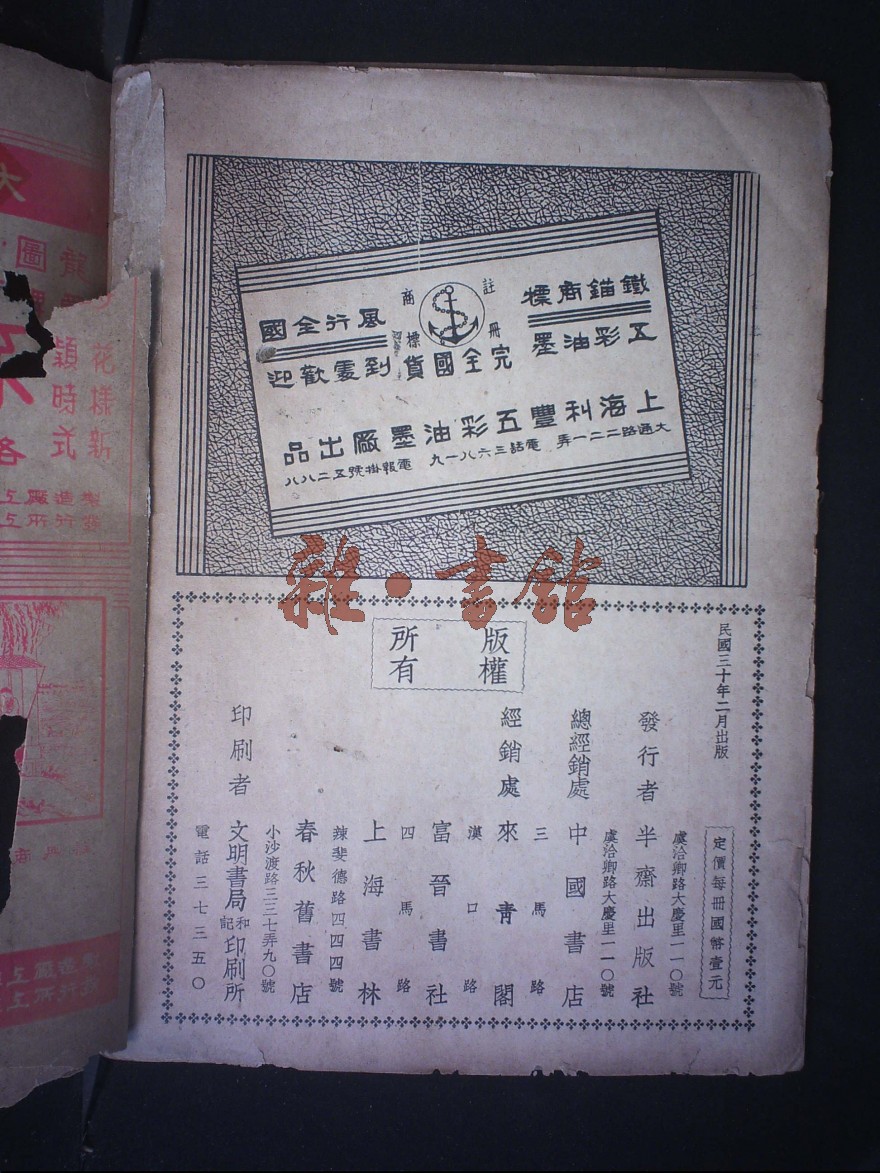 鐵錨商標
五彩油墨
註冊
商標
完全國貨
風行全國
到處歡迎
上海利豐五彩油墨廠出品
大通路二二一弄　電話三六八一九　電報掛號五二八八
雜·書館
版權所有
民國三十年二月出版
定價每冊國幣壹元
發行者　半齋出版社
虞洽卿路大慶里一一〇號
總經銷處　中國書店
虞洽卿路大慶里一一〇號
經銷處　來青閣
三馬路
富晉書社
漢口路
上海書林
四馬路
春秋舊書店
辣斐德路四四四號
印刷者　文明書局和記印刷所
小沙渡路三三七弄九〇號
電話三七三五〇
大
龍
圖
花樣新
穎時式